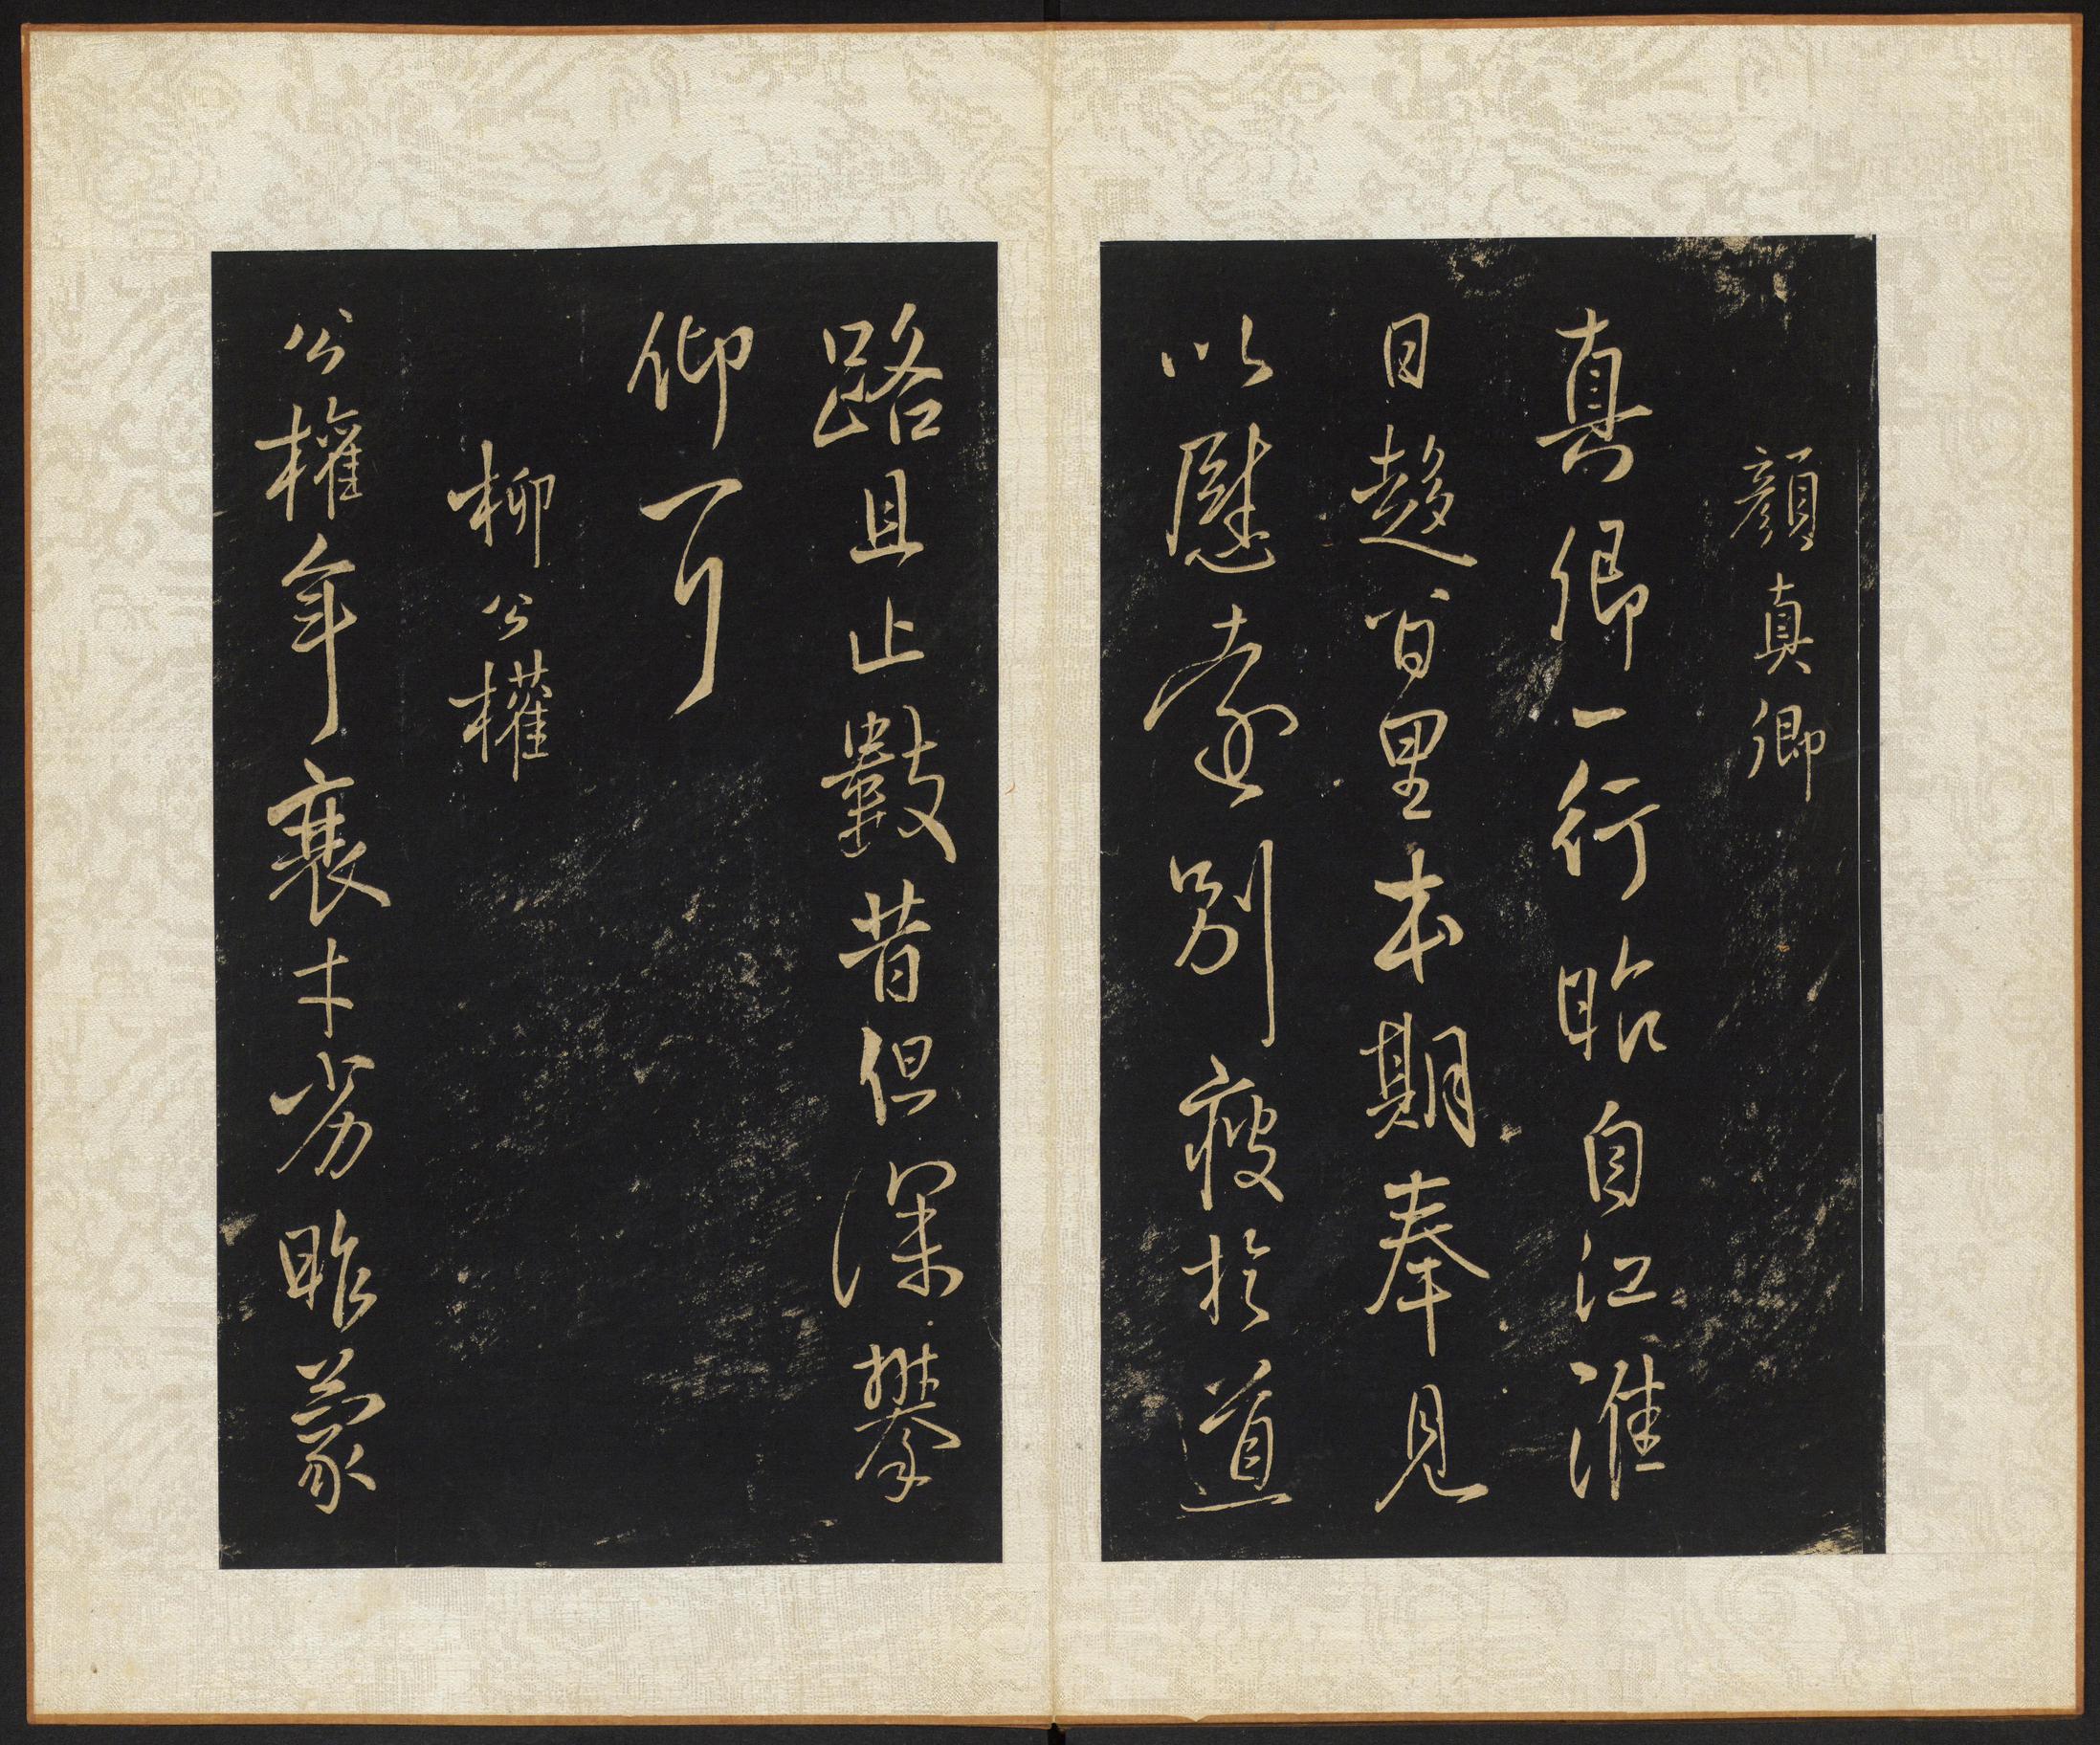 顏真卿
真卿一行昭自江淮
日趍百里本期奉見
以慰遠別疲於道
路且止鼗昔但深攀
仰耳
柳公權
公權年衰才劣昨蒙